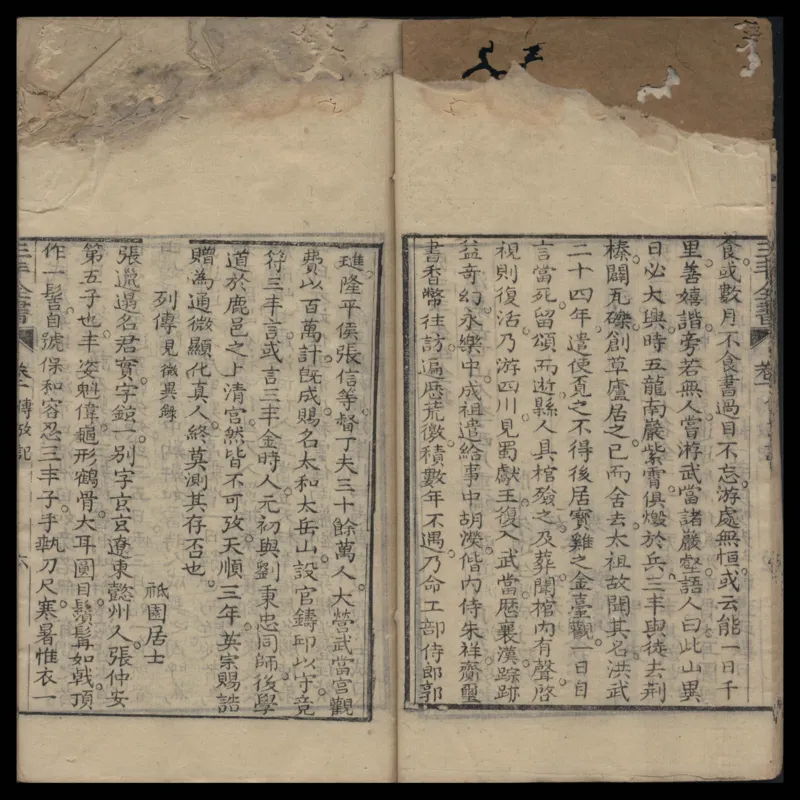 食或數月不食書過目不忘游處無恒或云能一日千
里善嬉諧旁若無人嘗游武當諸巖壑語人曰此山異
日必大興時五龍南巖紫霄俱燬於兵三丰與徒去荆
榛闢瓦礫創草廬居之已而舍去太祖故聞其名洪武
二十四年遣使覓之不得後居寶雞之金臺觀一日自
言當死留頌而逝縣人具棺殮之及葬聞棺內有聲啓
視則復活乃游四川見蜀獻王復入武當歷襄漢踪跡
益奇幻永樂中成祖遣給事中胡濙偕內侍朱祥齎璽
書香幣往訪遍歷荒徼積數年不遇乃命工部侍郎郭
璡隆平侯張信等督丁夫三十餘萬人大營武當宮觀
費以百萬計旣成賜名太和太岳山設官鑄印以守竟
符三丰言或言三丰金時人元初與劉秉忠同師後學
道於鹿邑之上清宮然皆不可攷天順三年英宗賜誥
贈為通微顯化真人終莫測其存否也
列傳見微異錄
祗園居士
張邋遢名君實字鯨一別字玄玄遼東懿州人張仲安
第五子也丰姿魁偉龜形鶴骨大耳圓目鬚髯如戟頂
作一髻自號保和容忍三丰子手執刀尺寒暑惟衣一
三丰全書 卷一 傳攷記 六